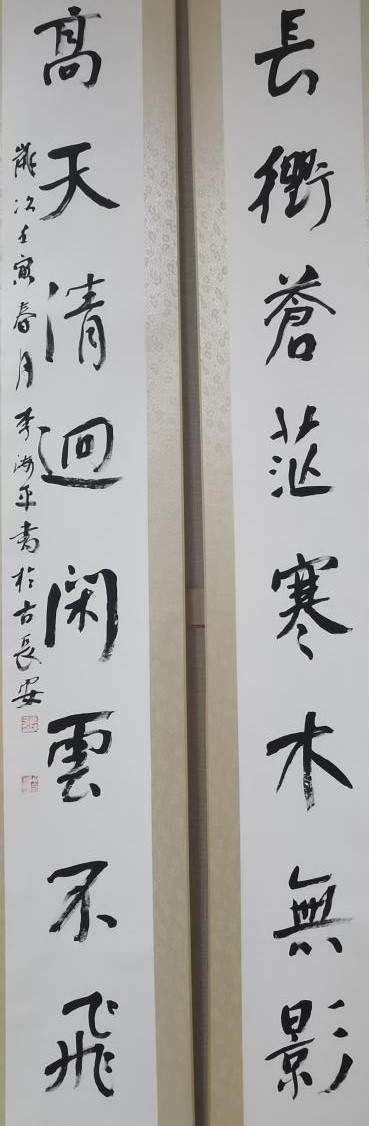 長衢蒼茫寒木無影
高天清迥閑雲不飛
歲次壬寅春月李海平書於古長安